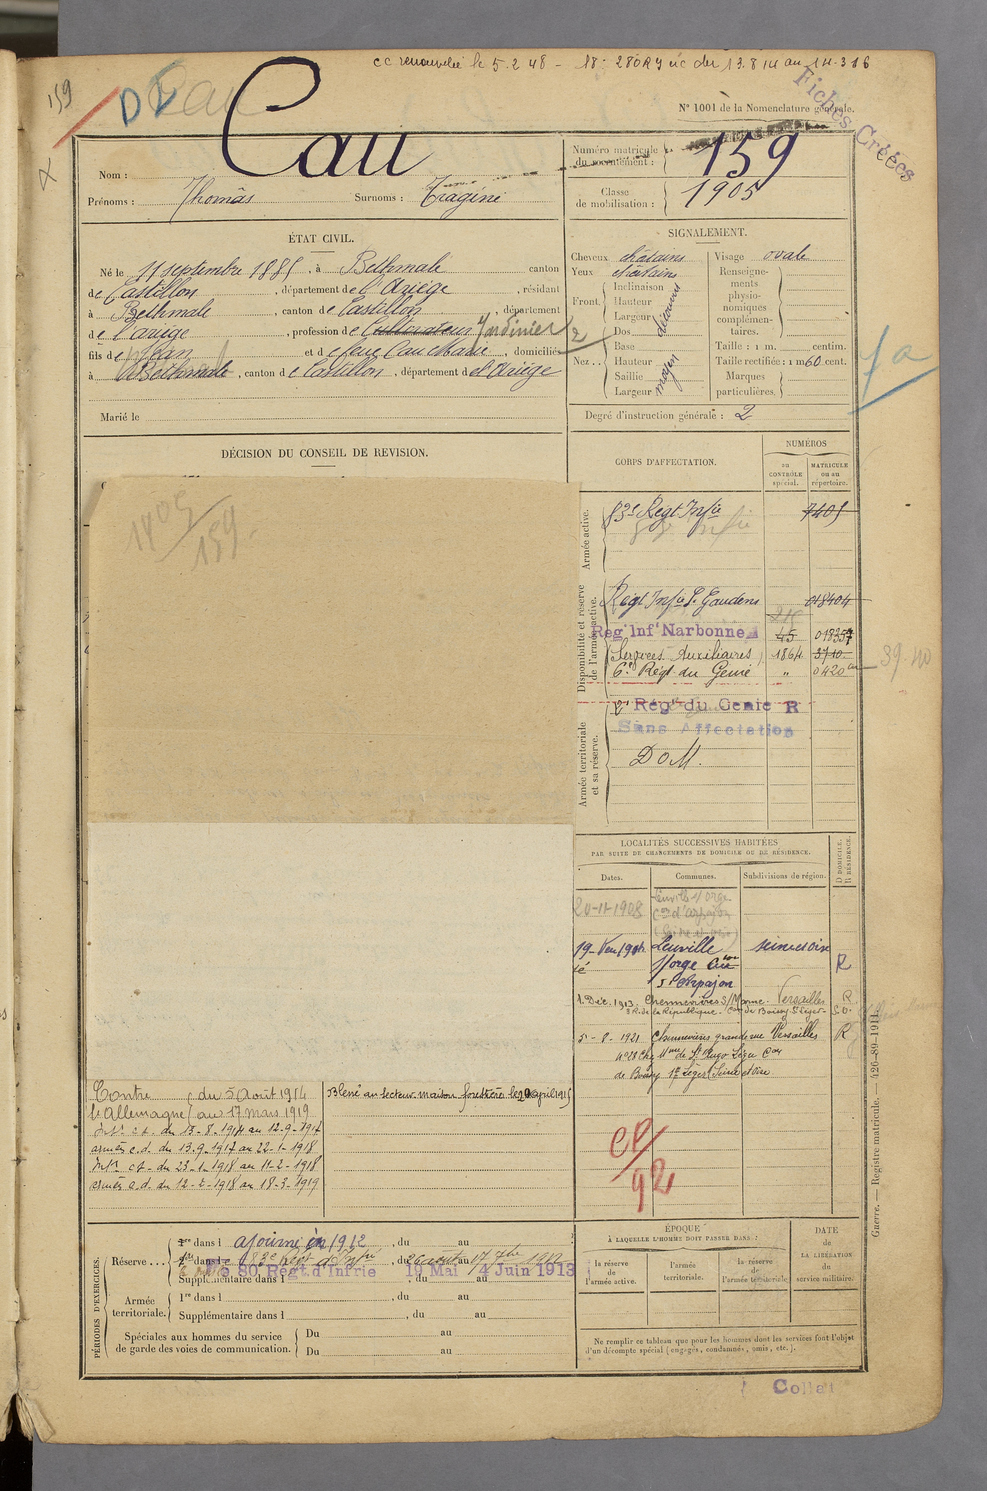 cc renouvelée le 5.2 48 - 18- 280RJ uc du 13.8 14 au 14.3 16
159
Fichés Créées
N° 1001 de la Nomenclature générale.
Cau
Nom :
Prénoms : Thomas Surnoms : Tragine
Numéro matricule du recrutement : 159
Classe de mobilisation : 1905
ÉTAT CIVIL.
Né le 11 septembre 1885, à Bethmale canton
de Castillon, département de l'Ariège, résidant
à Bethmale, canton de Castillon, département
de l'Ariège, profession de Cultivateur Jardinier
fils de Jean et de feue Cau Marie, domiciliés
à Bethmale, canton de Castillon, département de l'Ariège
Marié le
SIGNALEMENT.
Cheveux châtains
Yeux châtains
Front. Inclinaison
Hauteur
Largeur
découvert
Nez.. Dos
Base
Hauteur
Saillie
Largeur
moyen
Visage ovale
Renseignements physionomiques complémentaires.
Taille : 1 m. centim.
Taille rectifiée : 1 m 60 cent.
Marques particulières.
Degré d'instruction générale : 2
DÉCISION DU CONSEIL DE REVISION.
1905
159
CORPS D'AFFECTATION.
NUMÉROS
au CONTRÔLE spécial.
MATRICULE ou au répertoire.
Armée active.
83e Regt Infie 7405
Disponibilité et réserve de l'armée active.
Regt Infie St Gaudens 018404
Reg' Inf' Narbonne 45 018357
Services Auxiliaires 1864 3710
6e Régt du Génie " 0420
39.40
Armée territoriale et sa réserve.
Rég't du Génie R
Sans Affectation
DoM.
LOCALITÉS SUCCESSIVES HABITÉES
PAR SUITE DE CHANGEMENTS DE DOMICILE OU DE RÉSIDENCE.
Dates. Communes. Subdivisions de région. D DOMICILE. R RÉSIDENCE.
20-11-1908
Leuville seine et oise R
s/orge
Arpajon
1 Déc. 1913. Chennevières S/Marne. Versailles R
R. de la République. Con de Boissy St Léger- S.O.
5-8-1921 Chennevières grande rue Versailles R
de Boissy St Leger (Seine et Oise
CP/92
Contre l'Allemagne du 5 Août 1914 au 17 mars 1919
Intr c.s. du 13-8-1914 au 12-9-1917
armées c.d. du 13.9.1917 au 22-1-1918
Intr c.s. du 23-1-1918 au 11-2-1918
armées c.d. du 12-2-1918 au 18-3-1919
Blessé au secteur maison forestière le 29 april 1915
PÉRIODES D'EXERCICES
Réserve... 1re dans l ajourné en 1912, du au
2e dans le 83e Regt d'Infie, du 26 août au 17 7bre 1912
Supplémentaire dans l 80 Regt. d'Infrie 19 Mai 4 Juin 1913
Armée territoriale. 1re dans l , du au
Supplémentaire dans l , du au
Spéciales aux hommes du service de garde des voies de communication. Du au
Du au
ÉPOQUE
À LAQUELLE L'HOMME DOIT PASSER DANS :
la réserve de l'armée active.
l'armée territoriale.
la réserve de l'armée territoriale
DATE de LA LIBÉRATION du service militaire.
Ne remplir ce tableau que pour les hommes dont les services font l'objet
d'un décompte spécial (engagés, condamnés, omis, etc.).
Guerre. — Registre matricule. — 426-89-1911.